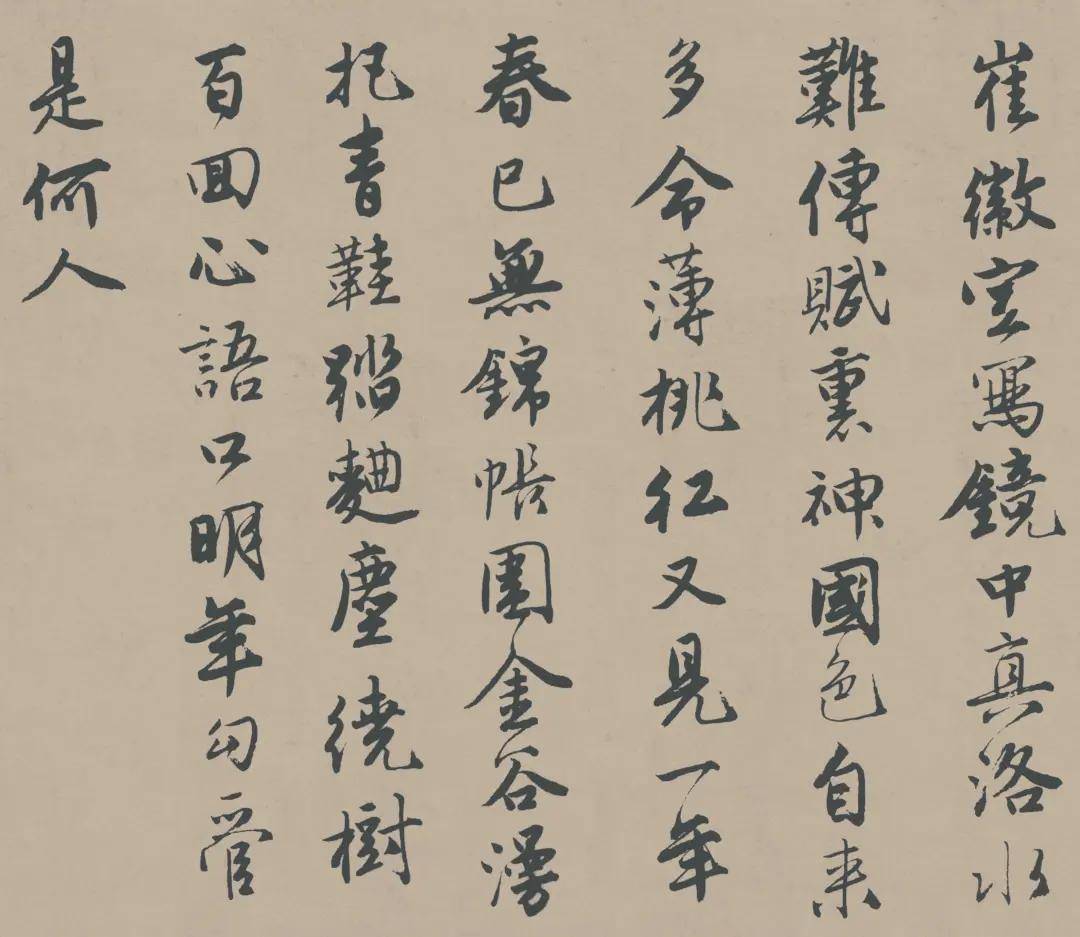 崔徽空寫鏡中真洛水
難傳賦裏神國色自来
多命薄桃紅又見一年
春已無錦帳圍金谷漫
把青鞋踏麴塵繞樹
百回心語口明年勾管
是何人